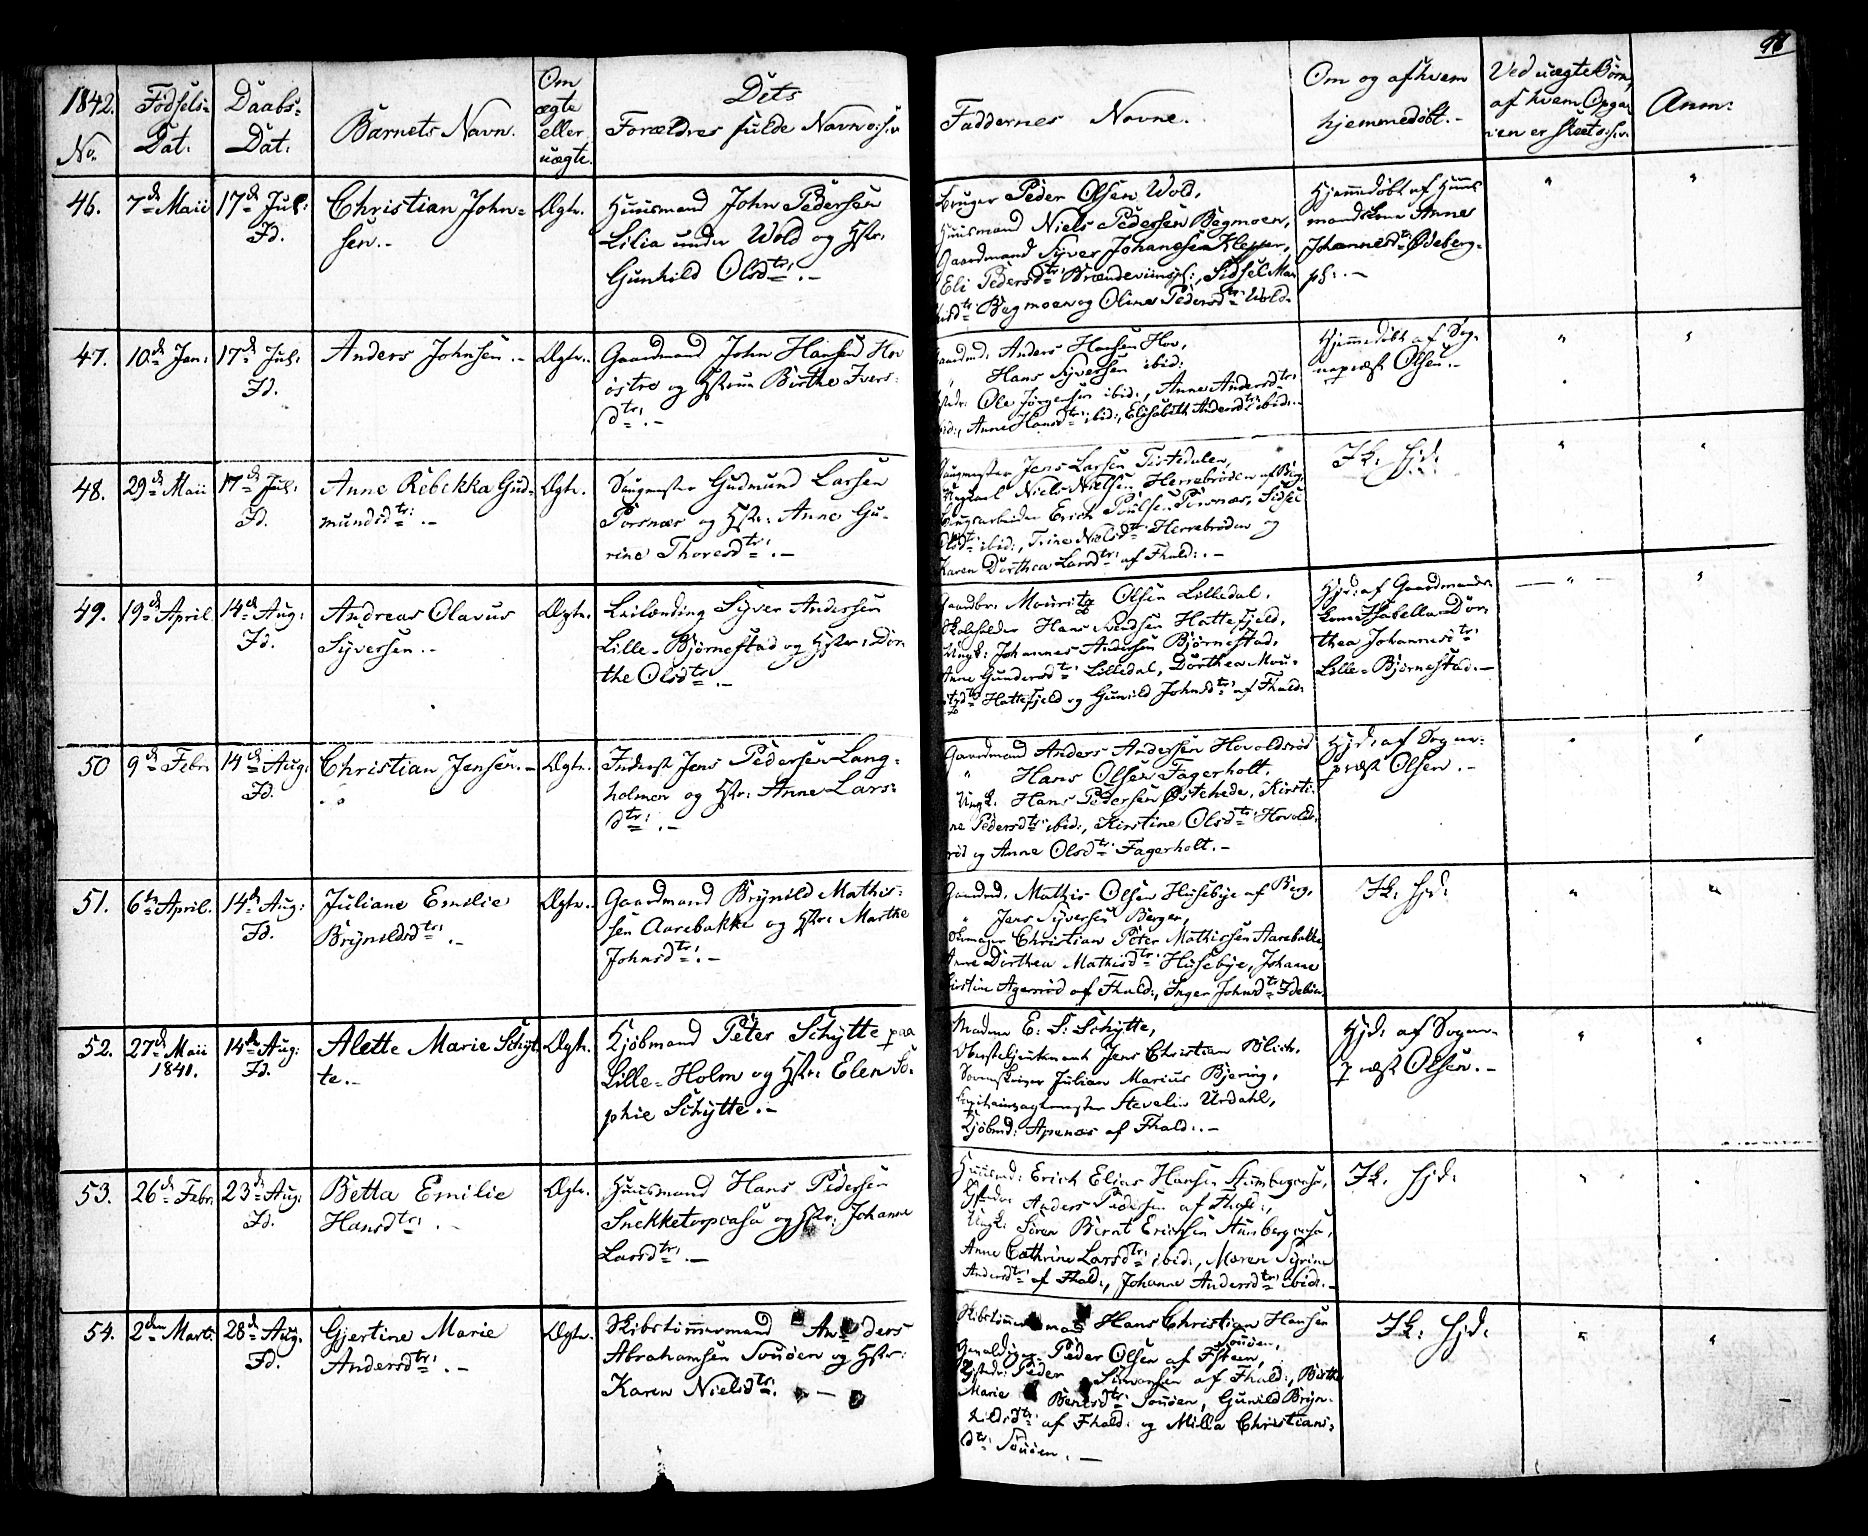 98
1842.
No.
Fødsels-
Dat:
Daabs-
Dat:
Barnets Navn.
Om
ægte
eller
uægte.
Dets
Forældres fulde Navn o: s: v
Faddernes Navne.
Om og af hvem
hjemmedøbt.-
Ved uægte Børn,
af hvem Opga-
ven er skeet o: s: v.
Anm:
46.
7de Maii
17de Jul:
Id.
Christian John-
sen.-
Ægte.
Huusmand John Pedersen
Lilia under Wold og Hstr:
Gunhild Olsdtr: .-
Bruger Peder Olsen Wold,
Huusmand Niels Pedersen Begmoen,
Gaardmand Syver Johannesen Klepper,
Eli Pedersdtr: Brændeviinspl:, Sidsel Man
Begmoen og Oline Pedersdtr: Wold.
Hjemmedøbt af Huus-
mandskone Anne
Johannesdtr: Ødeberg-
pl: .-
47.
10de Jan:
17de Jul:
Id.
Anders Johnsen .-
Ægte.
Gaardmand John Hansen Hov
østre og Hstru Birthe Ivers-
dtr: .-
Gaardmd. Anders Hansen Hov,
" Hans Syversen ibid:
Ole Jørgensen ibid:, Anne Andersdtr:
ibid:, Anne Hansdtr: ibid:, Elisabeth Andersdtr: ibid: .-
Hjemmedøbt af Sog-
nepræst Olsen .-
48.
29de Maii
17de Jul:
Id.
Anne Rebekka Gud-
mundsdtr: .-
Ægte.
Saugmester Gudmund Larsen
Porsnæs og Hstr: Anne Gu-
rine Thoresdtr: .-
Saugmester Jens Larsen Tistedalen,
Ungkarl Niels Nielsen Herrebrøden af Berg,
Saugarbeider Erich Poulsen Porsnæs, Sidsel
Olsdtr: ibid:, Trine Nielsdtr: Herrebrøden og
Karen Dorthea Larsdtr: af Fhald: .-
Ik: hjd:
49.
19de April
14de Aug:
Id.
Andreas Olavus
Syversen .-
Ægte.
Leilænding Syver Andersen
Lille-Bjørnestad og Hstr: Dor-
the Olsdtr: .-
Gaardbr: Mouritz Olsen Lilledal,
Skoleholder Hans Svendsen Hattefjeld,
Ungk: Johannes Andersen Bjørnestad,
Anne Gundersdtr: Lilledal, Dorthea Mou-
ritzdtr: Hattefjeld og Gunild Johnsdtr: af Fhald:
Hjd: af Gaardmands-
kone Isabella Dor-
thea Johannesdtr:
Lille-Bjørnestad .-
50
9de Febr:
14de Aug:
Id.
Christian Jensen .-
Ægte.
Inderst Jens Pedersen Lang-
holmen og Hstr: Anne Lars-
dtr: .-
Gaardmand Anders Andersen Hovoldsrød
" Hans Olsen Fagerholt,
Ungk: Hans Pedersen Østehede, Kirsti-
ne Pedersdtr: ibid:, Kirstine Olsdtr: Hovolds-
rød og Anne Olsdtr: Fagerholt .-
Hjd: af Sogne-
præst Olsen .-
51.
6te April.
14de Aug:
Id.
Juliane Emilie
Brynildsdtr: .-
Ægte.
Gaardmand Brynild Mathis-
sen Aarebakke og Hstr: Marthe
Johnsdtr: .-
Gaardmd. Mathis Olsen Husebye af Berg,
" Jens Syversen Berger,
Skomager Christian Peter Mathissen Aarebakke,
Anne Dorthea Mathisdtr: Husebye, Johanne
Kirstine Agerrød af Fhald:, Inger Johnsdtr: Idebøen.
Ik: hjd:
52.
27de Maii
1841.
14de Aug:
Id.
Alette Marie Schyt-
te .-
Ægte.
Kjøbmand Peter Schytte paa
Lille-Holm og Hstr: Elen So-
phie Schytte .-
Madme E: S: Schytte,
Oberstlieutenant Jens Christian Blich,
Sorenskriver Julian Marius Bjering,
Stevelin Urdahl,
Kjøbmd: Apenæs af Fhald: .-
Hjd: af Sogne-
præst Olsen .-
53.
26de Febr.
23de Aug:
Id.
Betta Emilie
Hansdtr: .-
Ægte.
Huusmand Hans Pedersen
Snekketorpenson og Hstr: Johanne
Larsdtr: .-
Huusmd: Erich Elias Hansen
Anders Pedersen af Fhald:,
Ungk: Søren Bernt Erichsen
Anne Cathrine Larsdtr: ibid:, Maren Syrine
Andersdtr: af Fhald:, Johanne Andersdtr: ibid: .-
Ik: hjd:
54.
2den Marts
28de Aug:
Id.
Gjertine Marie
Andersdtr: .-
Ægte.
Skibstømmermand Anders
Abrahamsen Souøen og Hstr:
Karen Nielsdtr: .-
Skibstømmermand Hans Christian Hansen
Souøen,
Peder Olsen af Fsteen,
Peder Simonsen af Fhald:, Birthe
Marie Berntsdtr: Souøen, Gunild Bryn-
hildsdtr: af Fhald: og Milla Christians-
dtr: Souøen .-
Ik: hjd: